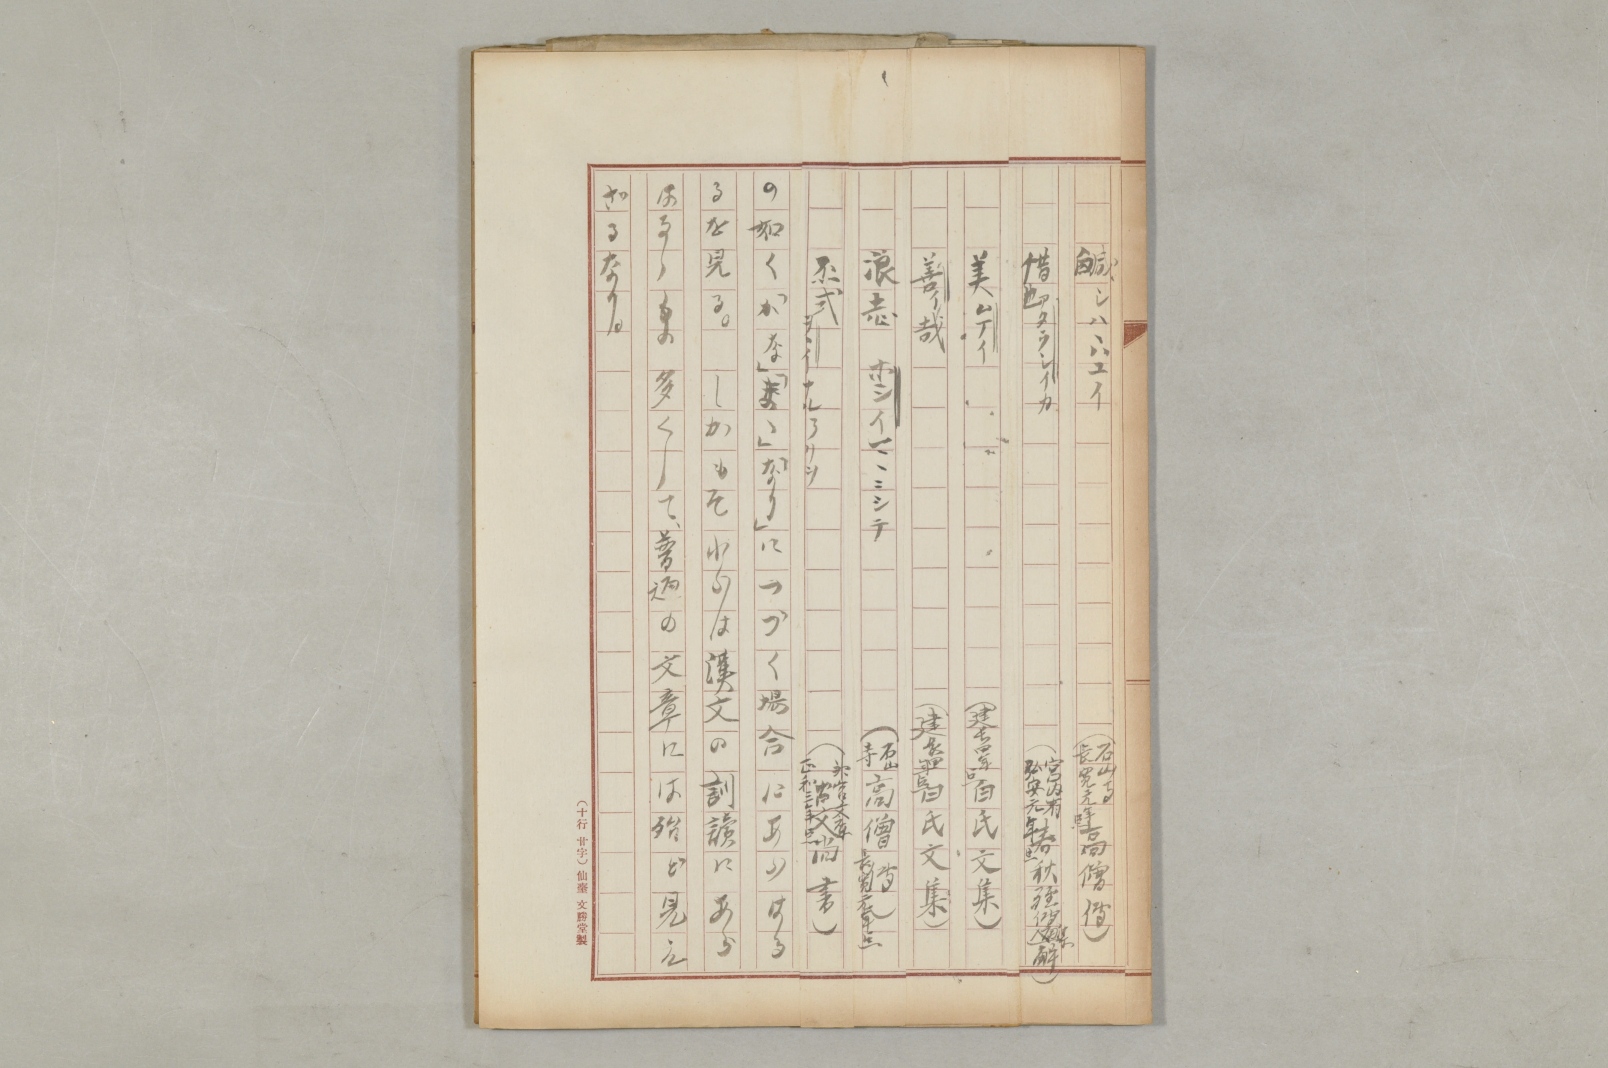 鹹シハヽユイ(石山寺長寛元年点高僧傳)
惜也アタラシイカ(宮内省弘安元年点春秋経傳集解)
美ムテイ(建長四年点白氏文集)
善イ哉(建長四年点白氏文集)
浪志 ホシイマヽミシテ(石山寺高僧傳長寛元年点)
(神宮文庫正和三年点古文尚書)
の如くかな」「まゝ」「なり」につづく場合にあらはる
るを見る。しかもそれらは漢文の訓讀にあら
はるゝもの多くして、普通の文章には殆ど見え
ざるなり。
(十行 廿字)仙臺 文勝堂製